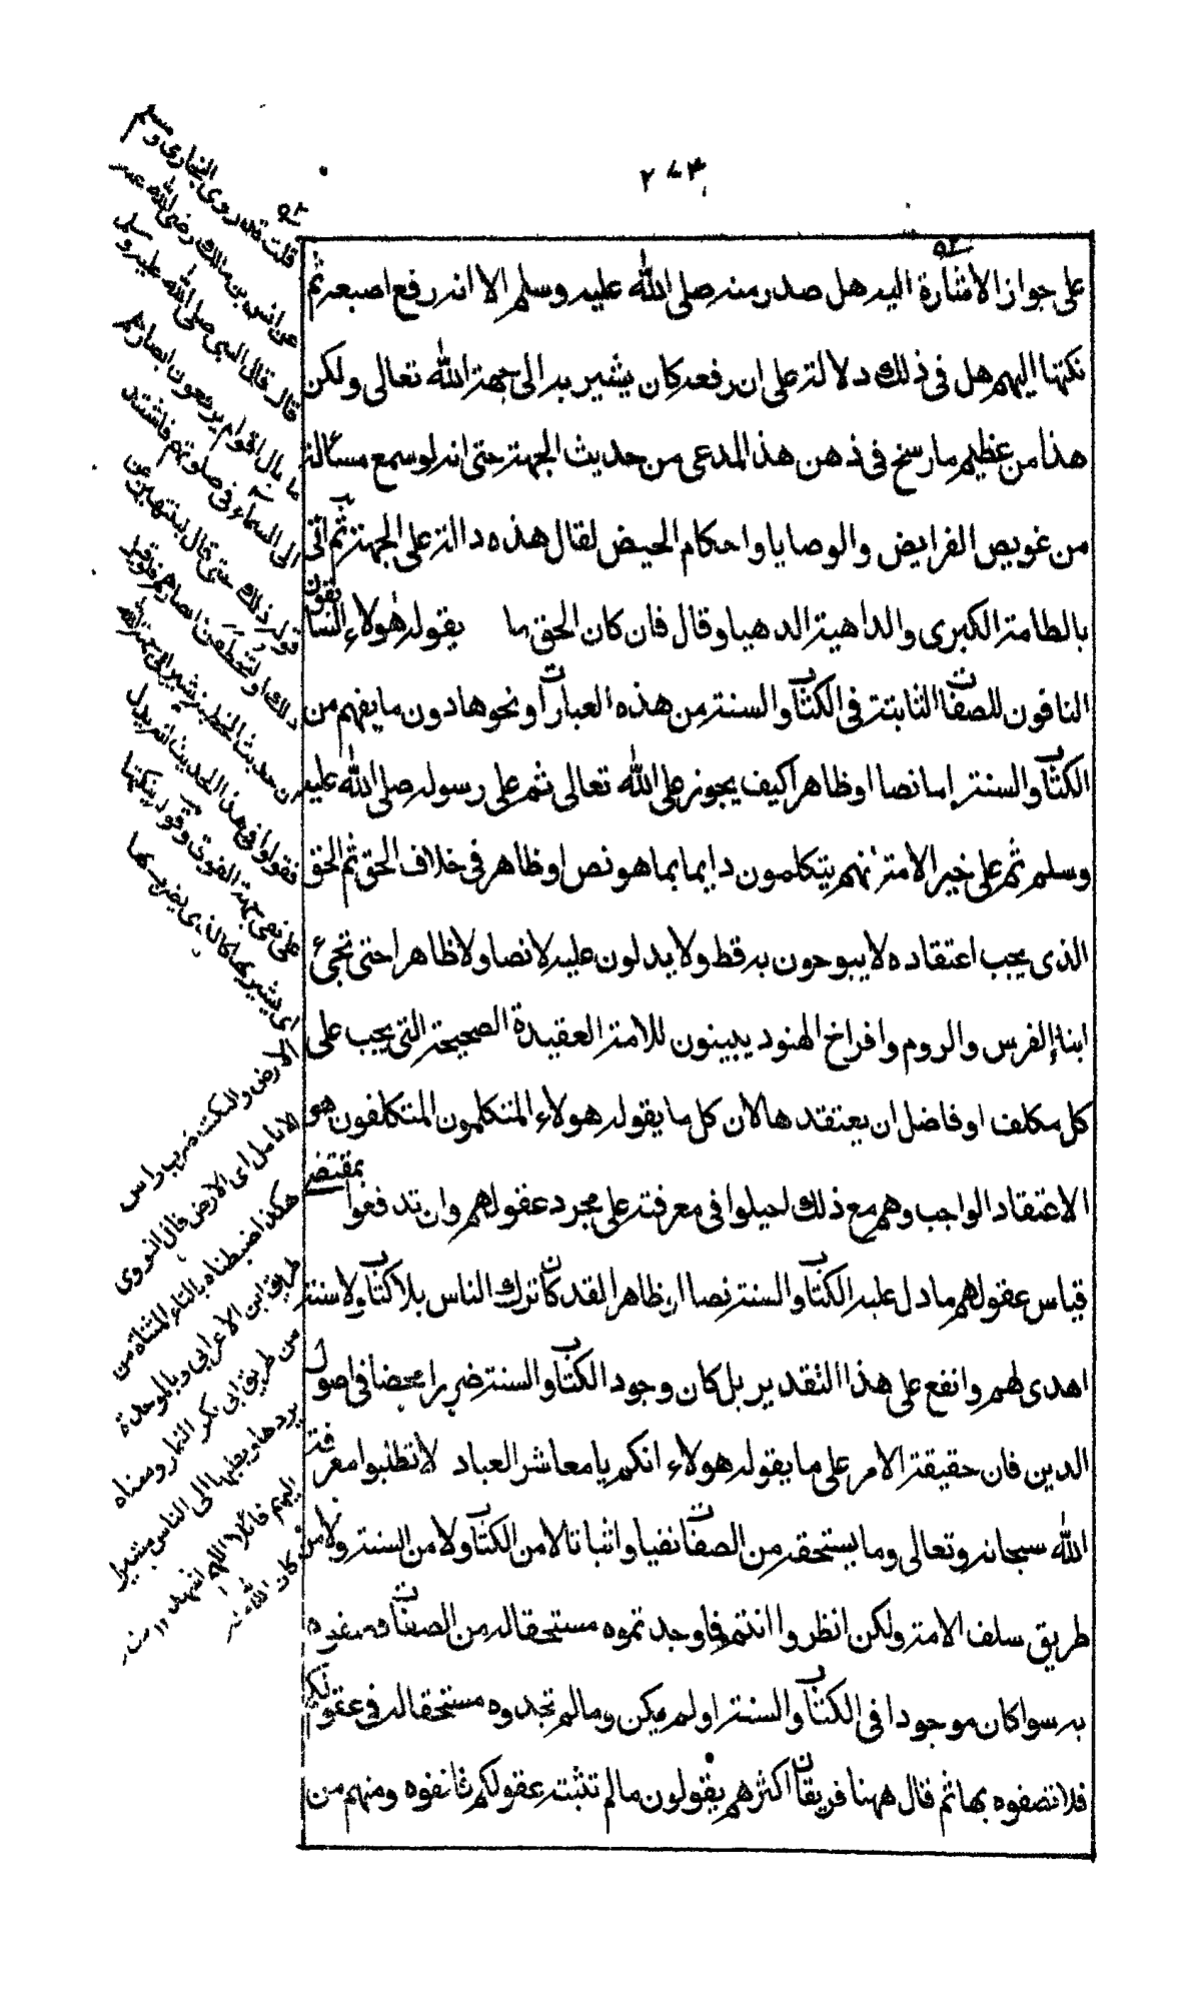 ٢٧٣
على جواز الاشارة اليه هل صدر منه صلى الله عليه وسلم الا انه رفع اصبعه ثم
نكتها اليهم هل فى ذلك دلالة على ان رفعه كان يشير به الى جهة الله تعالى ولكن
هذا من عظيم ما رسخ فى ذهن هذ المدعى من حديث الجهة حتى انه لو سمع مسألة
من عويص الفرايض والوصايا واحكام الحيض لقال هذه دالة على الجهة ثم اتى
بالطامة الكبرى والداهية الدهيا وقال فان كان الحق ما يقوله هولاء السابقون
النافون للصفات الثابتة فى الكتاب والسنة من هذه العبارات ونحوها دون ما يفهم من
الكتاب والسنة اما نصا او ظاهرا كيف يجوز على الله تعالى ثم على رسوله صلى الله عليه
وسلم ثم على خير الامة انهم يتكلمون دايما بما هو نص او ظاهر فى خلاف الحق ثم الحق
الذى يجب اعتقاده لا يبوحون به قط ولا يدلون عليه لا نصا ولا ظاهرا حتى تجىء
ابناء الفرس والروم وافراخ الهنود يبينون للامة العقيدة الصحيحة التى يجب على
كل مكلف او فاضل ان يعتقدها لان كل ما يقوله هولاء المتكلمون المتكلفون هو
الاعتقاد الواجب وهم مع ذلك احيلوا فى معرفته على مجرد عقولهم وان تدفعوا بمقتضى
قياس عقولهم ما دل عليه الكتاب والسنة نصا او ظاهرا لقد كان ترك الناس بلا كتاب ولا سنة
اهدى لهم وانفع على هذا التقدير بل كان وجود الكتاب والسنة ضررا محضا فى اصول
الدين فان حقيقة الامر على ما يقوله هولاء انكم يا معاشر العباد لا تطلبوا معرفة
الله سبحانه وتعالى وما يستحقه من الصفات نفيا واثباتا لا من الكتاب ولا من السنة ولا من
طريق سلف الامة ولكن انظروا انتم فما وجدتموه مستحقا له من الصفات فصفوه
به سوا كان موجودا فى الكتاب والسنة او لم يكن وما لم تجدوه مستحقا له فى عقولكم
فلا تصفوه بها ثم قال ههنا فريقان اكثرهم يقولون ما لم تثبته عقولكم فانفوه ومنهم من
قلت قد روى البخارى ومسلم
عن انس بن مالك رضى الله عنه
قال قال النبى صلى الله عليه وسلم
ما بال اقوام يرفعون ابصارهم
الى السماء فى صلوتهم فاشتد
قوله ذلك حتى قال لينتهين عن
ذلك او لتخطفن ابصارهم
فقولوا فى هذا الحديث
على نفى جهة الفوق وقوله ينكتها
اى يشير بها كالذى يضرب بها
الارض والنكت ضرب راس
الانامل اى الارض قال النووى
هكذا ضبطناه بالتاء المثناة من
طريق ابن الاعرابى وبالموحدة
من طريق ابى بكر التمار ومعناه
يردها ويقلبها الى الناس مشيرا
اليهم قائلا اللهم اشهد